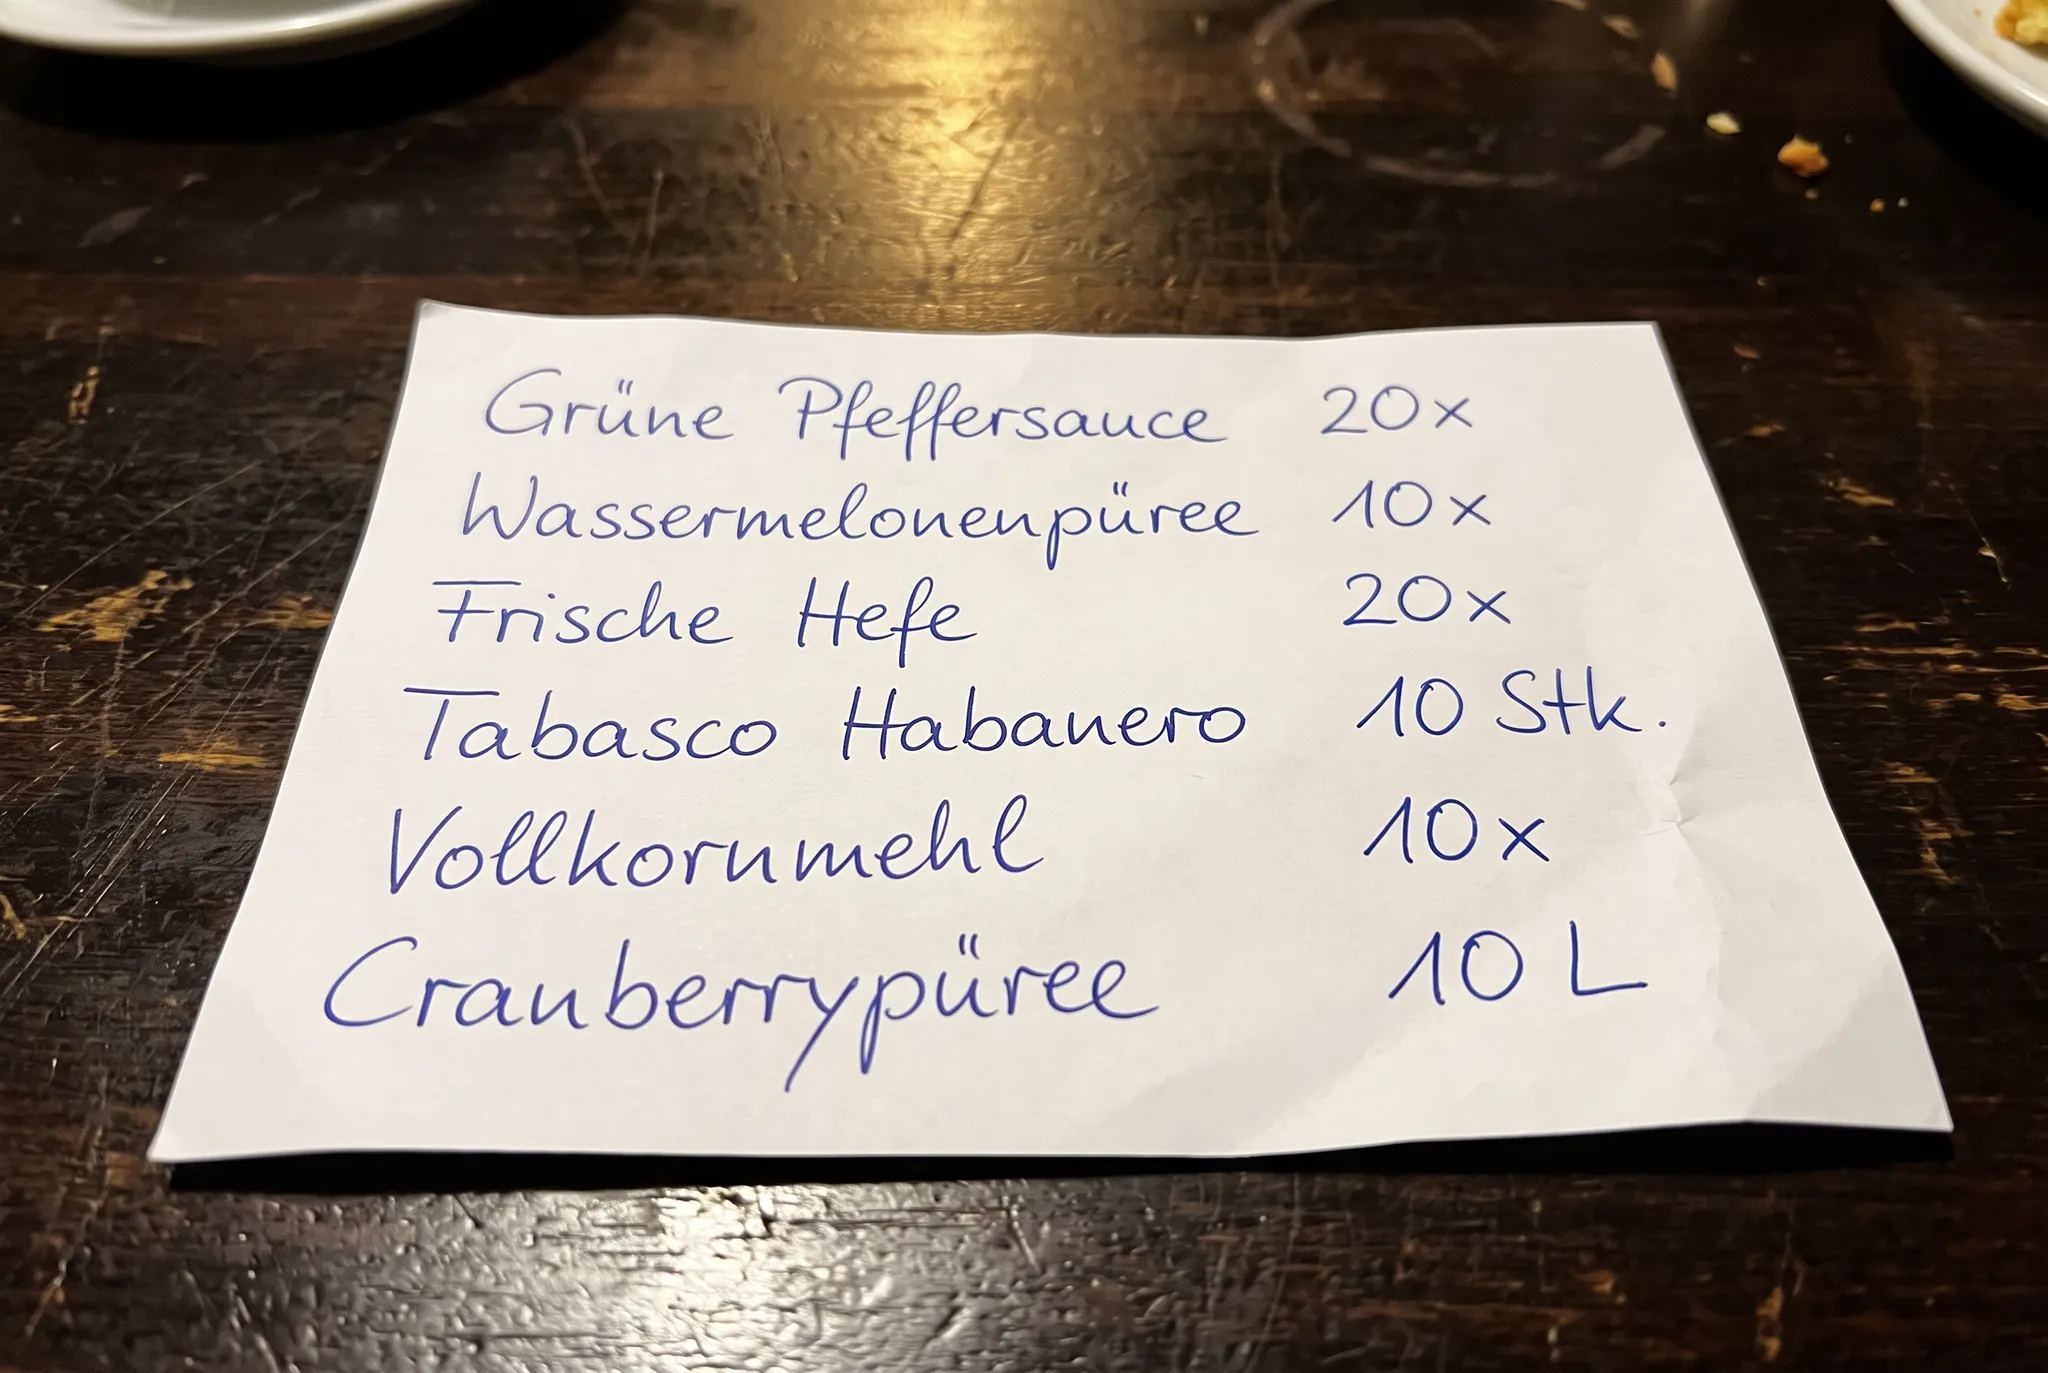 Grüne Pfeffersauce 20x
Wassermelonenpüree 10x
Frische Hefe 20x
Tabasco Habanero 10 Stk.
Vollkornmehl 10x
Cranberrypüree 10 L